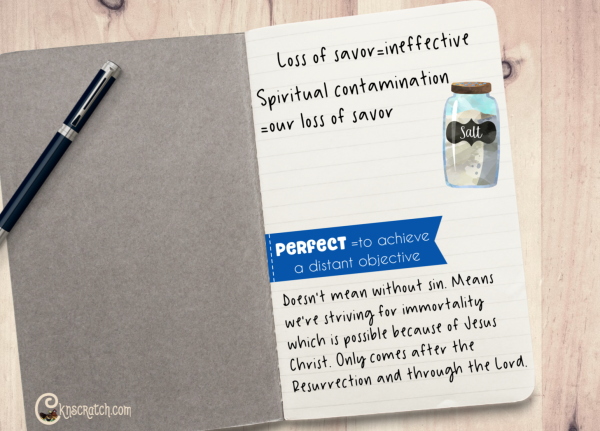 Loss of savor=ineffective
Spiritual contamination
=our loss of savor
Salt
PERFECT =to achieve
a distant objective
Doesn't mean without sin. Means
we're striving for immortality
which is possible because of Jesus
Christ. Only comes after the
Resurrection and through the Lord.
cknscratch.com